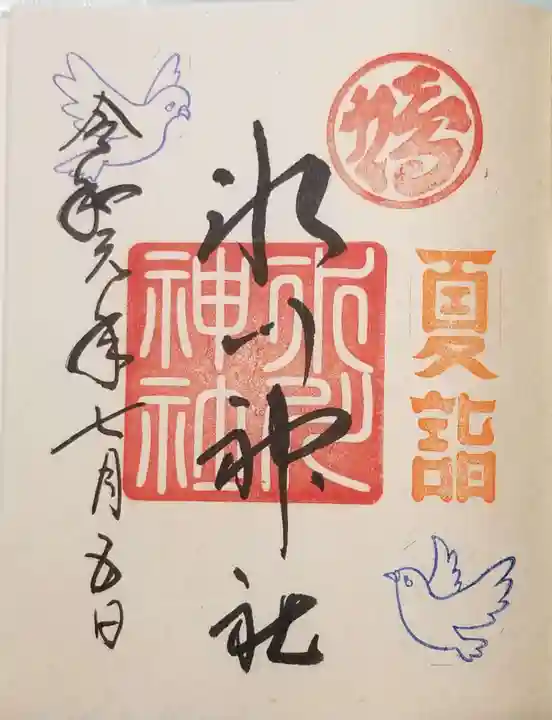 夏詣
氷川神社
氷川
神社
令和元年七月五日